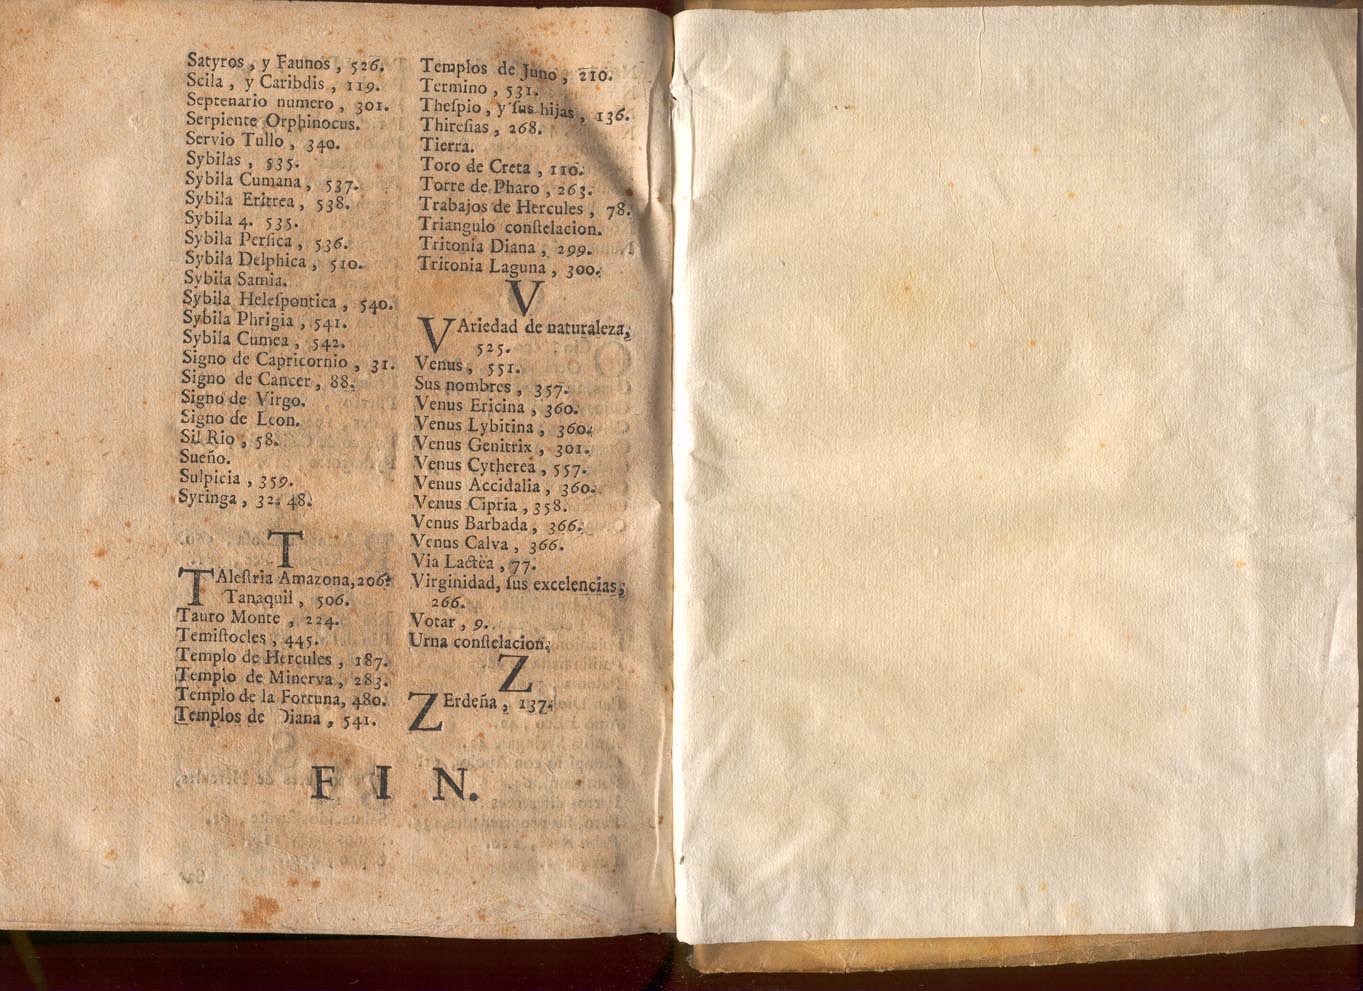 Satyros, y Faunos, 526.
Scila, y Caribdis, 119.
Septenario numero, 301.
Serpiente Orphinocus.
Servio Tullo, 340.
Sybilas, 535.
Sybila Cumana, 537.
Sybila Eritrea, 538.
Sybila 4. 535.
Sybila Persica, 536.
Sybila Delphica, 510.
Sybila Samia.
Sybila Heleſpontica, 540.
Sybila Phrigia, 541.
Sybila Cumea, 542.
Signo de Capricornio, 31.
Signo de Cancer, 88.
Signo de Virgo.
Signo de Leon.
Sil Rio, 58.
Sueño.
Sulpicia, 359.
Syringa, 32. 48.
T
TAleſtria Amazona, 206.
Tanaquil, 506.
Tauro Monte, 224.
Temiſtocles, 445.
Templo de Hercules, 187.
Templo de Minerva, 283.
Templo de la Fortuna, 480.
Templos de Diana, 541.
Templos de Juno, 210.
Termino, 531.
Theſpio, y ſus hijas, 136.
Thireſias, 268.
Tierra.
Toro de Creta, 110.
Torre de Pharo, 263.
Trabajos de Hercules, 78.
Triangulo conſtelacion.
Tritonia Diana, 299.
Tritonia Laguna, 300.
V
VAriedad de naturaleza,
525.
Venus, 551.
Sus nombres, 357.
Venus Ericina, 360.
Venus Lybitina, 360.
Venus Genitrix, 301.
Venus Cytherea, 557.
Venus Accidalia, 360.
Venus Cipria, 358.
Venus Barbada, 366.
Venus Calva, 366.
Via Lactea, 77.
Virginidad, ſus excelencias,
266.
Votar, 9.
Urna conſtelacion.
Z
ZErdeña, 137.
FIN.